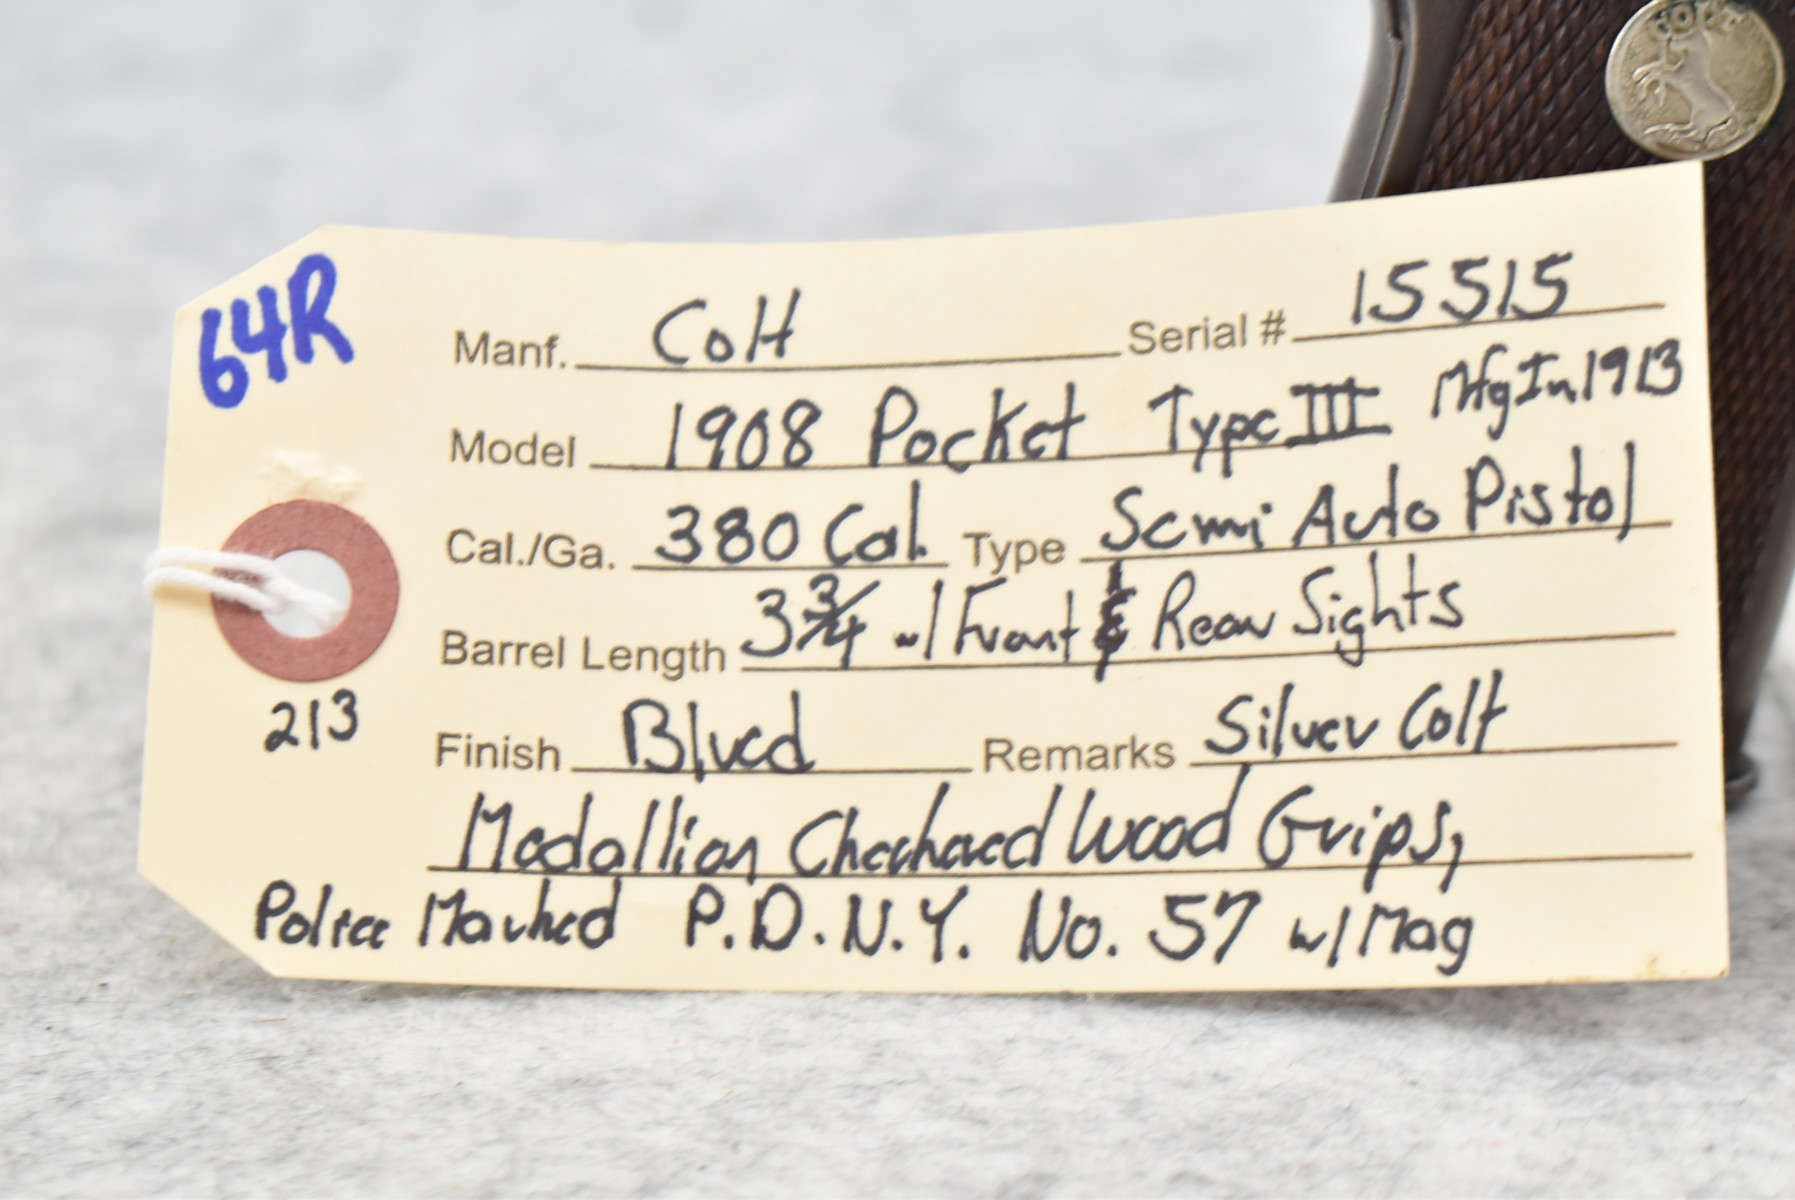 COLT
64R
Manf. Colt Serial # 15515
Model 1908 Pocket Type III Mfg In. 1913
Cal./Ga. 380 Cal. Type Semi Auto Pistol
Barrel Length 3 3/4 w/ Front & Rear Sights
213
Finish Blued Remarks Silver Colt
Medallion Checkered Wood Grips,
Police Marked P.D.N.Y. No. 57 w/ Mag